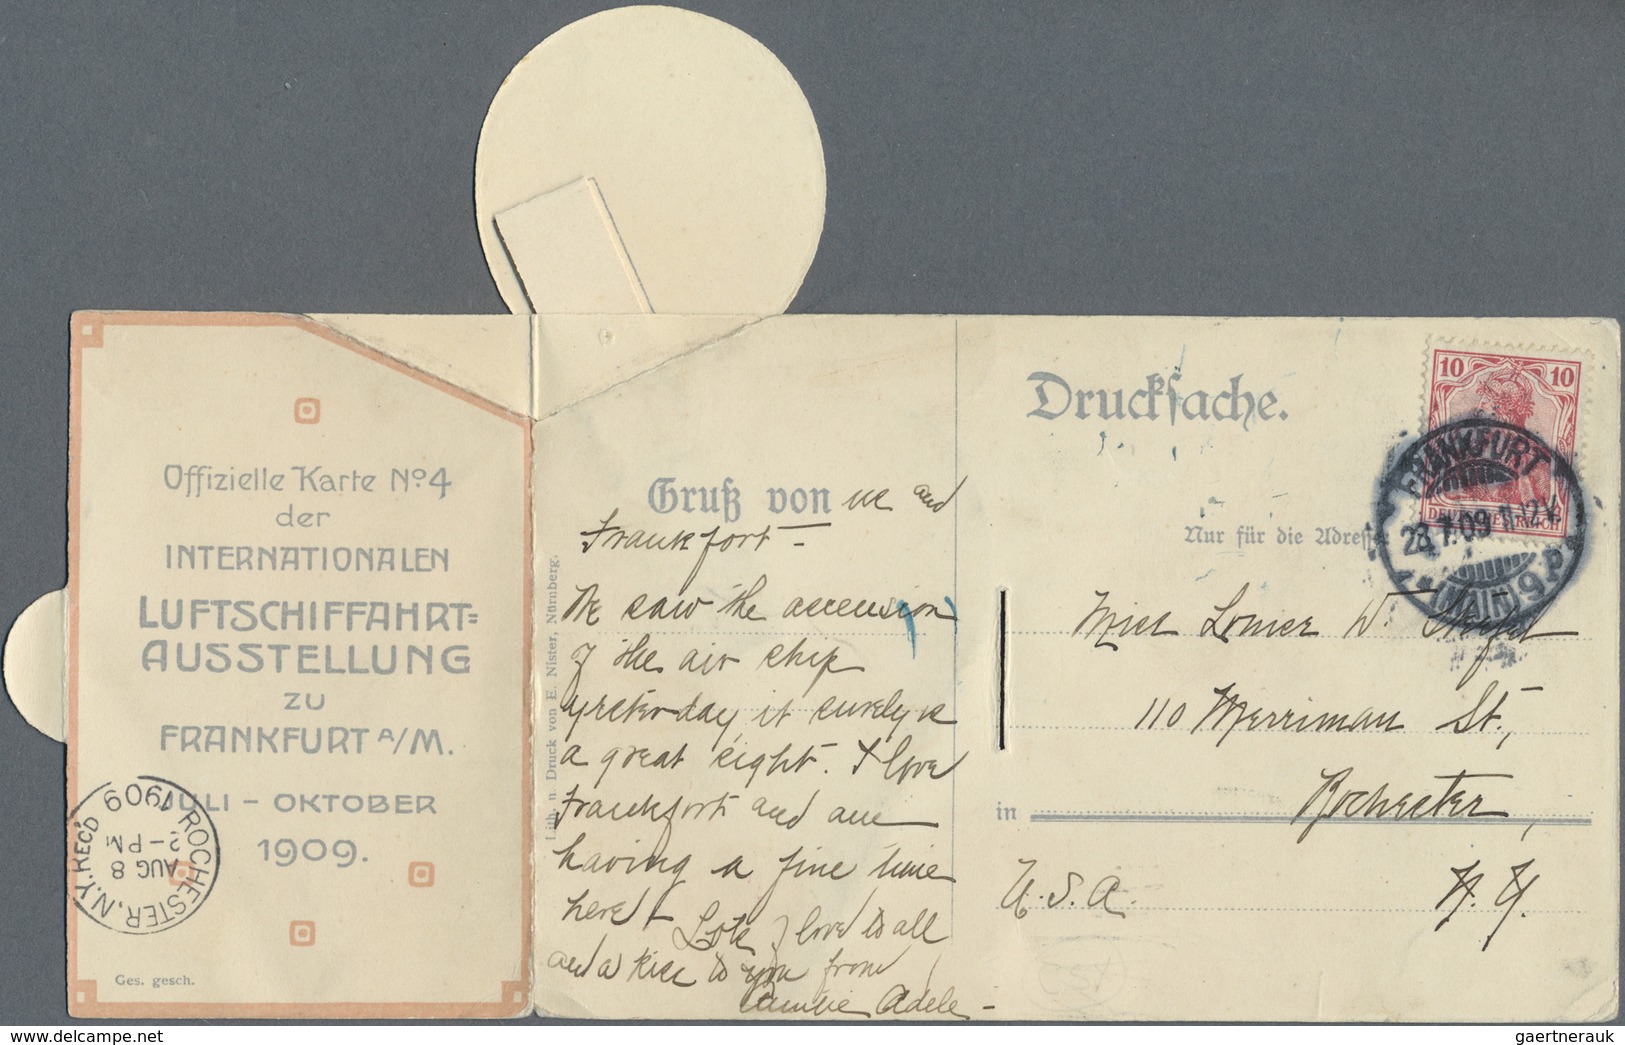 Offizielle Karte No 4
der
INTERNATIONALEN
LUFTSCHIFFAHRT=
AUSSTELLUNG
ZU
FRANKFURT A/M.
JULI – OKTOBER
1909.
Ges. gesch.
ROCHESTER, N.Y. REC'D
AUG 8
2-PM
1909
Lith. u. Druck von E. Nister, Nürnberg.
Gruß von us and
Frankfort –
We saw the ascension
of the air ship
yesterday it surely is
a great sight. I love
Frankfort and am
having a fine time
here
Lots of love to all
and a kiss to you from
Adele –
Druckſache.
10 10
DEUTSCHES REICH
FRANKFURT
28.7.09.11-12V.
*(MAIN)9P*
Nur für die Adreſſe
Miss W.
110 Merriman St.,
in Rochester,
U.S.A. N.Y.
delcampe.net
gaertnerauk